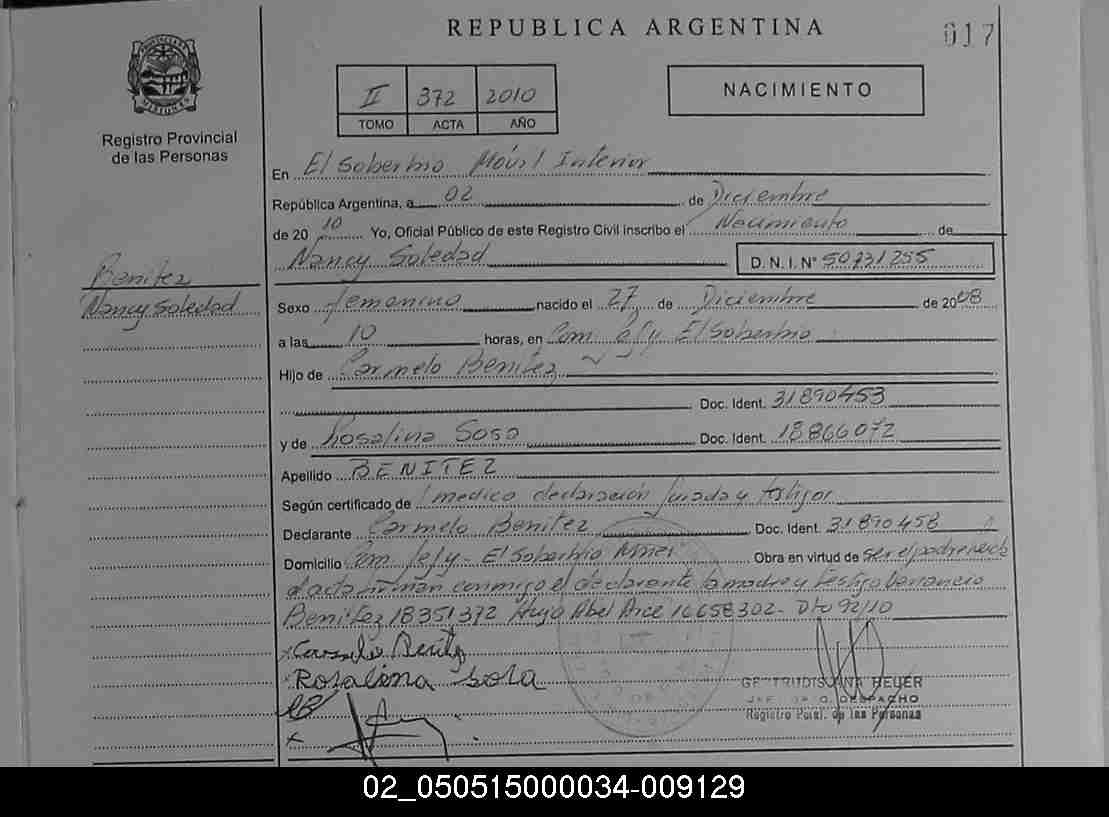 REPUBLICA ARGENTINA
017
PROVINCIA DE MISIONES
Registro Provincial
de las Personas
II 372 2010
TOMO ACTA AÑO
NACIMIENTO
En El Soberbio Móvil Interior
República Argentina, a 02 de Diciembre
de 20 10 Yo, Oficial Público de este Registro Civil inscribo el Nacimiento de
Nancy Soledad D.N.I.Nº 50731255
Benitez
Nancy Soledad
Sexo femenino nacido el 27 de Diciembre de 2008
a las 10 horas, en Com. El Soberbio
Hijo de Carmelo Benitez
Doc. Ident. 31890453
y de Rosalina Sosa Doc. Ident. 18866072
Apellido BENITEZ
Según certificado de medico declaración jurada y testigos
Declarante Carmelo Benitez Doc. Ident. 31890458
Domicilio Com. - El Soberbio Mnes Obra en virtud de ser el padre
acta firman conmigo el declarante la madre y testigo Venancio
Benitez 18351372 Hugo Abel Arce 16658302 - Dto 92/10
Rosalina Sosa
GERTRUDIS ANA HEUER
DESPACHO
Registro Pcial. de las Personas
02_050515000034-009129